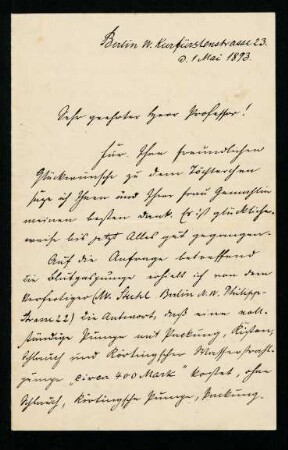 Berlin W. Kurfürstenstrasse 23.
d. 1 Mai 1893.
Sehr geehrter Herr Professor!
Für Ihre freundlichen
Glückwünsche zu dem Töchterchen
sage ich Ihnen und Ihrer Frau Gemahlin
meinen besten Dank. Es ist glücklicher-
weise bis jetzt Alles gut gegangen.
Auf die Anfrage betreffend
die Blutgaspumpe erhielt ich von dem
Verfertiger (W. Stehl Berlin N.W. Philipp-
strasse 22) die Antwort, daß eine voll-
ständige Pumpe mit Packung, Kisten,
Schlauch und Körtingscher Wasserstrahl-
pumpe "circa 400 Mark" kostet, ohne
Schlauch, Körtingsche Pumpe, Packung.